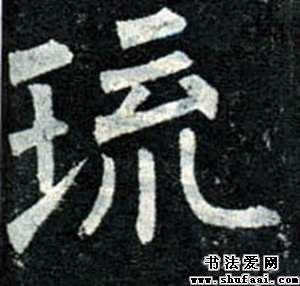 琉
书法爱网
www.shufaai.com